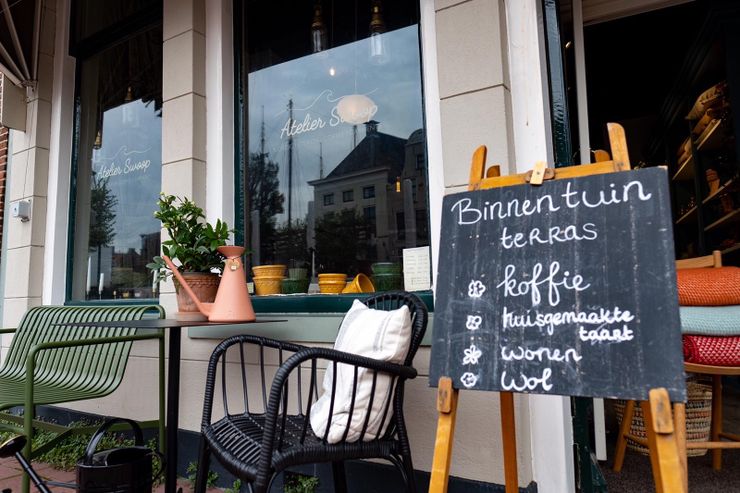 Atelier Swoop
Atelier Swoop
Binnentuin
terras
koffie
huisgemaakte
taart
wonen
wol